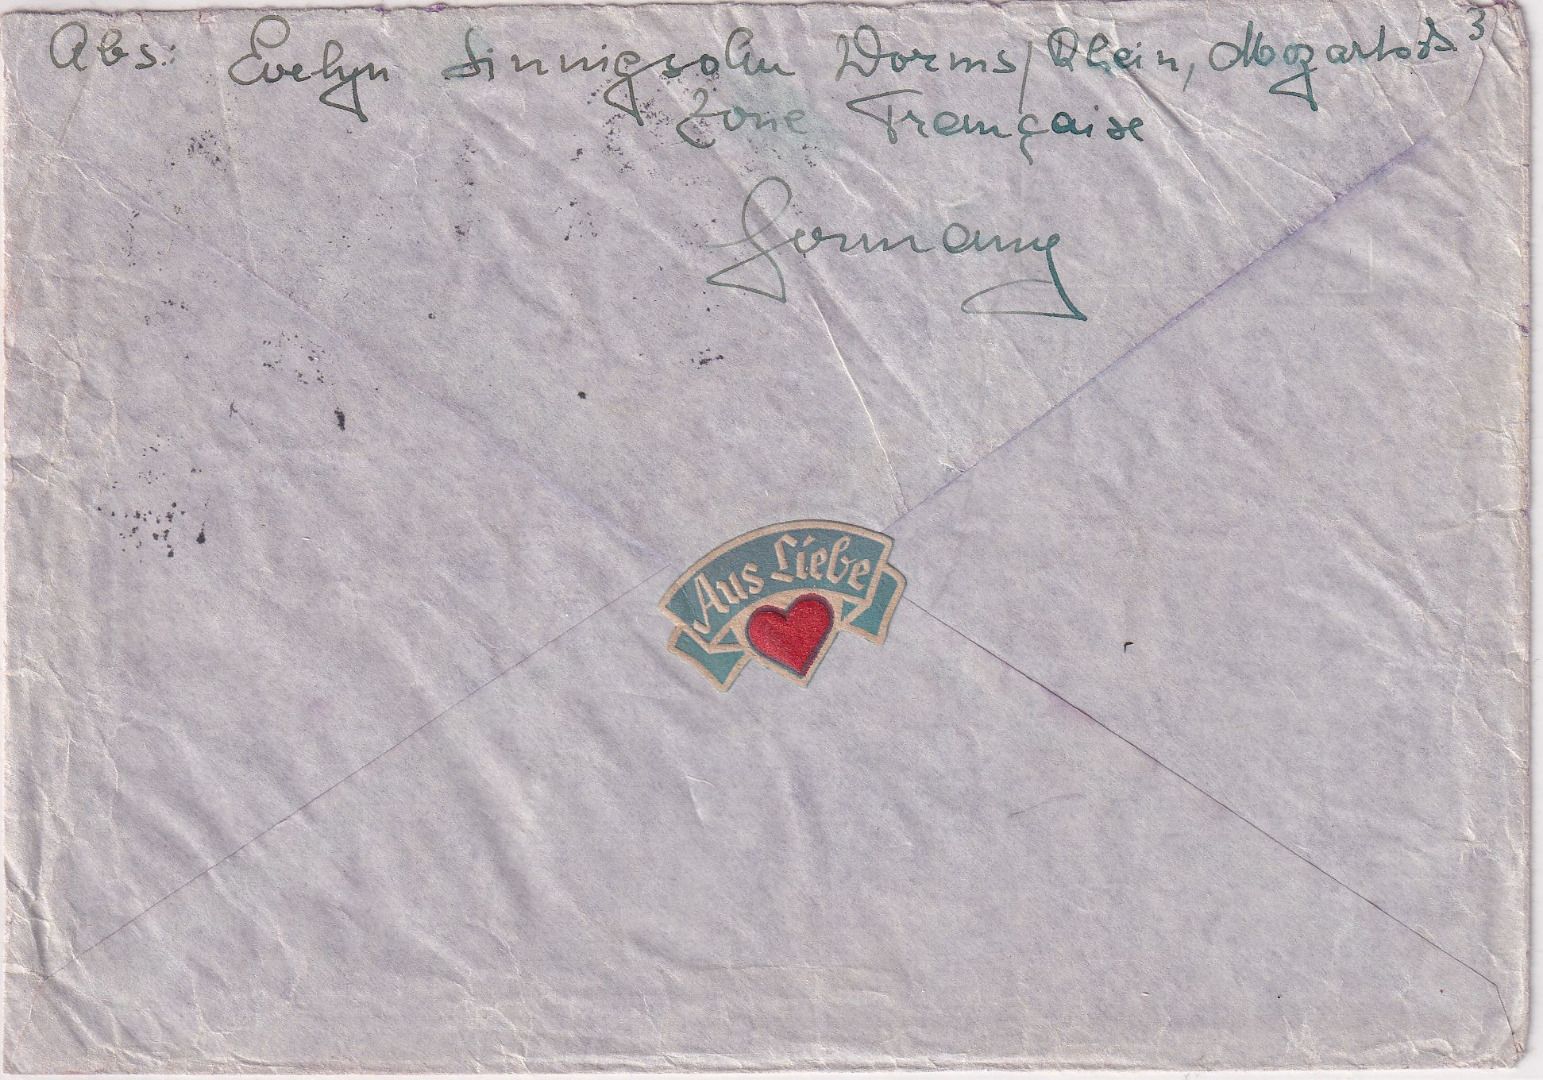 Abs: Evelyn Sinnigsohn Worms/Rhein, Mozartstr 3
Zone Française
Germany
Aus Liebe